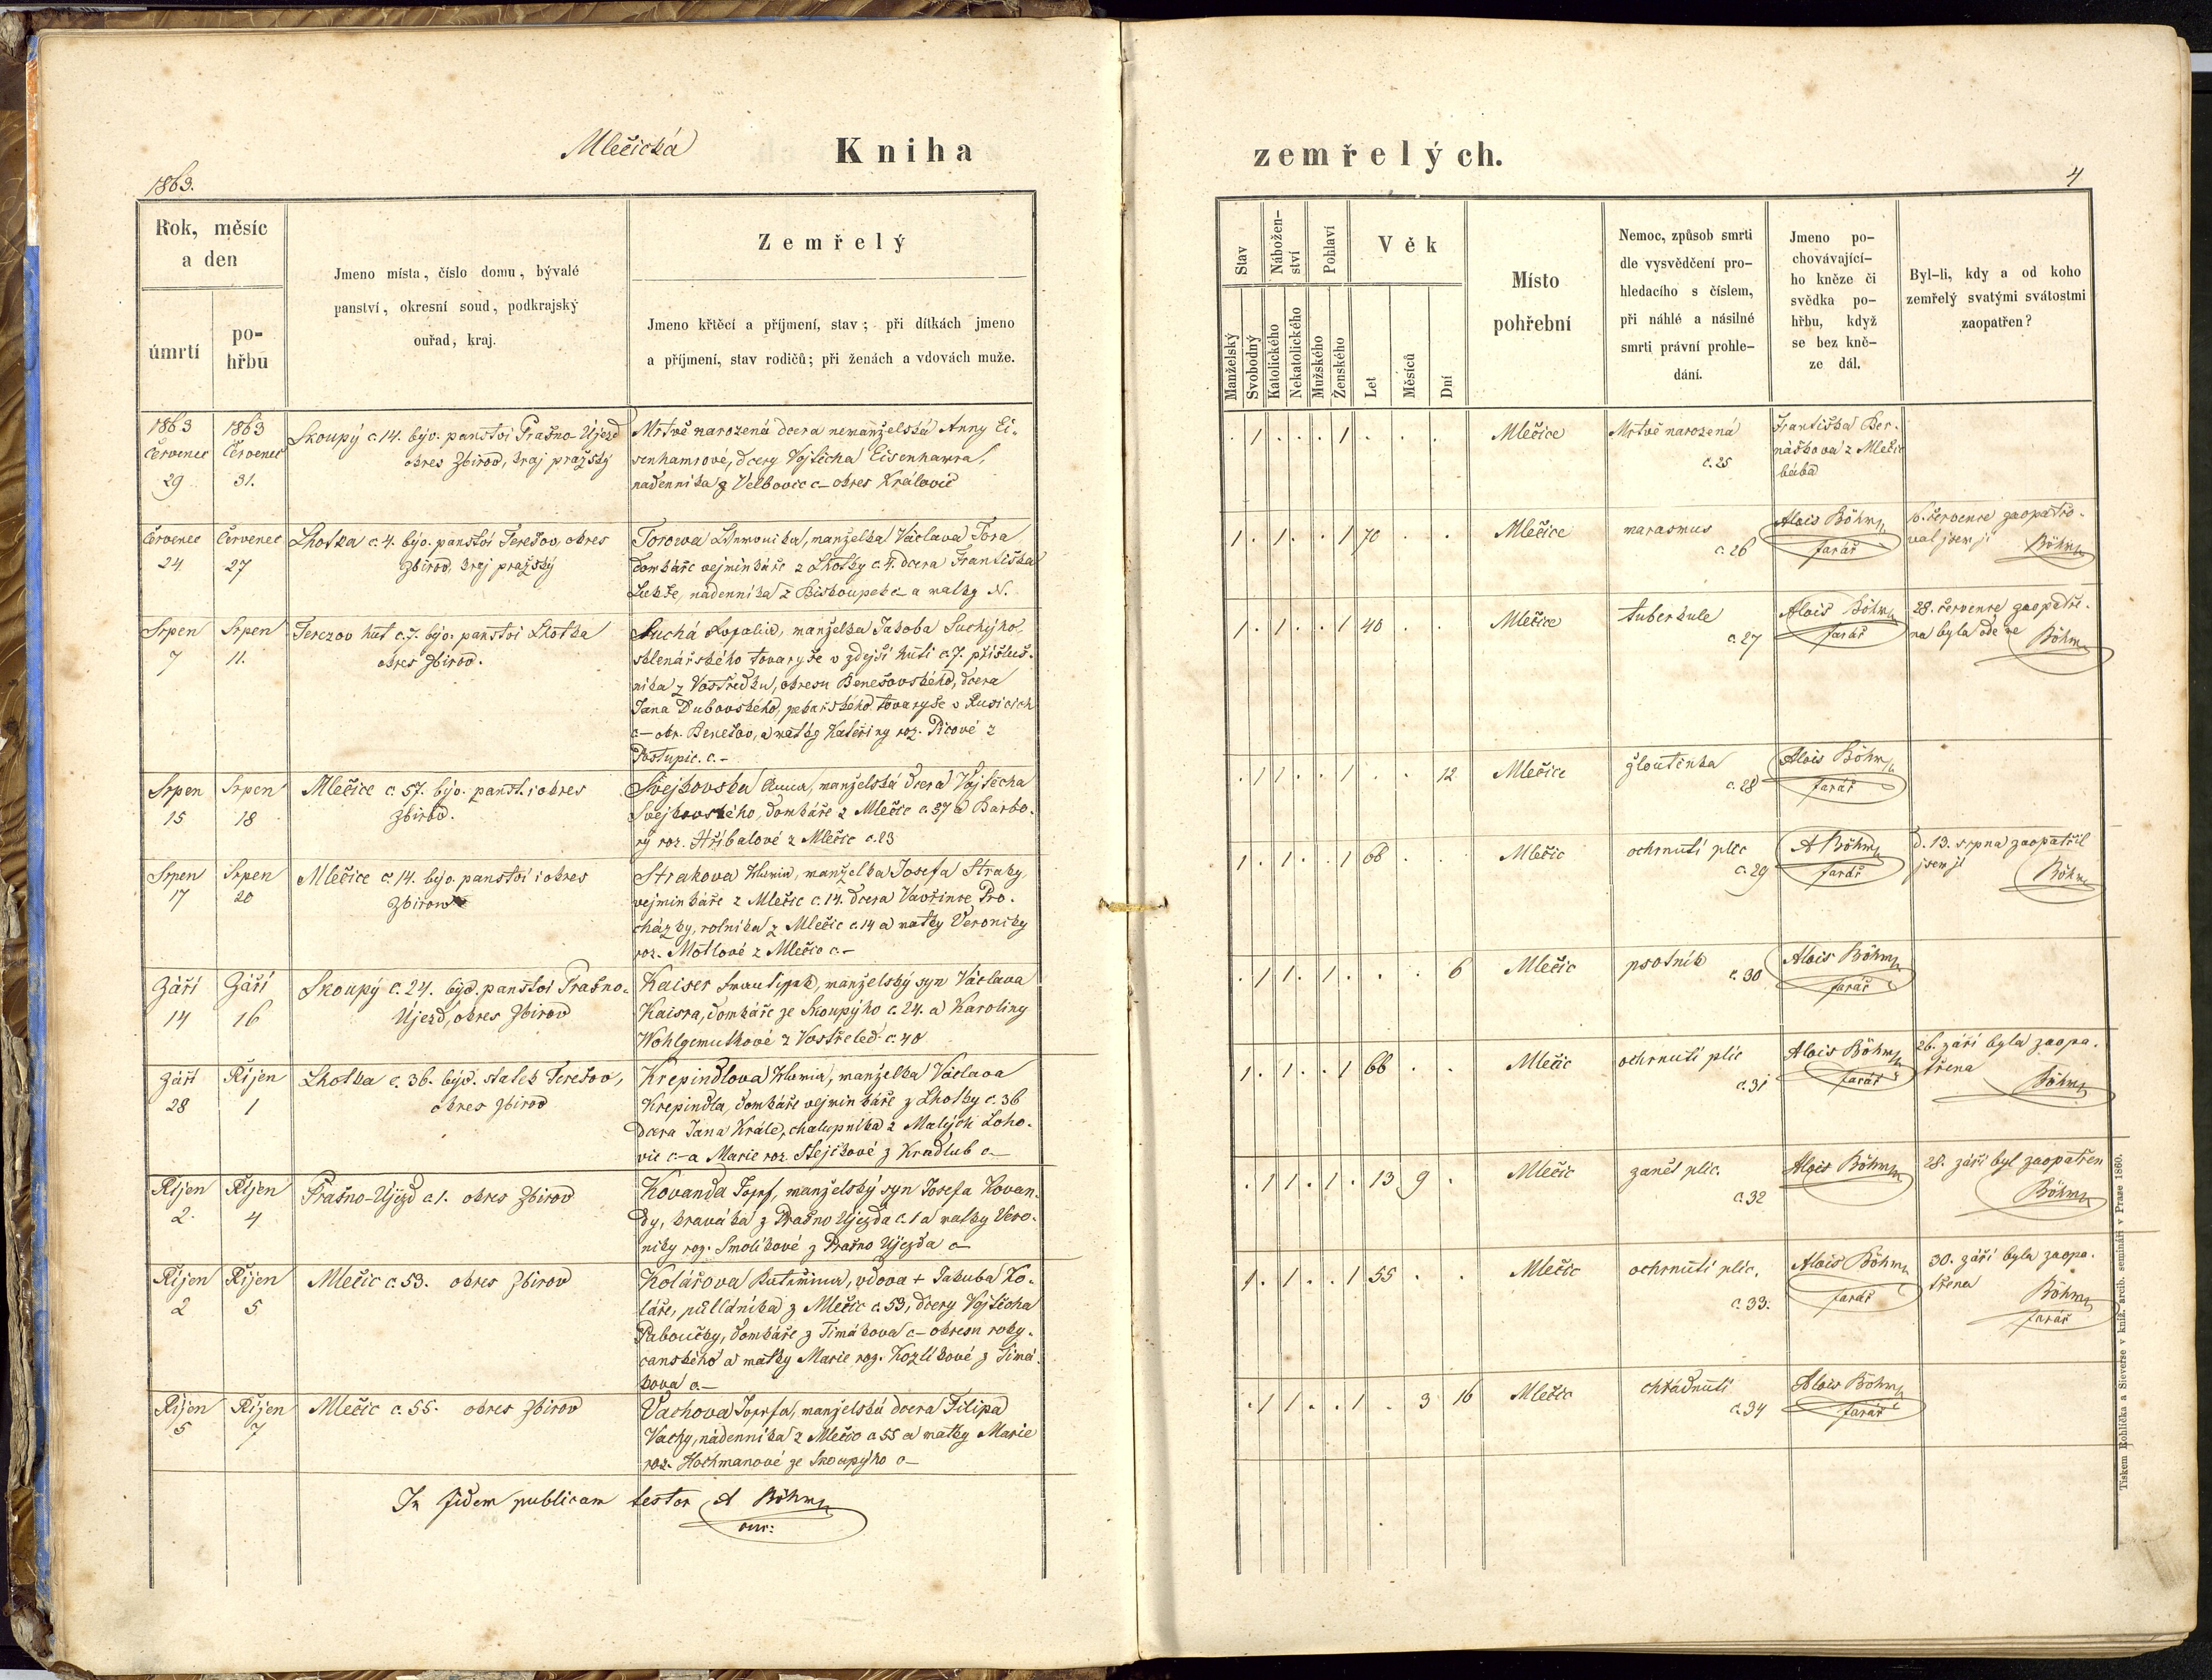 Mlečická Kniha
1863.
Rok, měsíc
a den
úmrtí
po-
hřbu
Jmeno místa, číslo domu, bývalé
panství, okresní soud, podkrajský
ouřad, kraj.
Zemřelý
Jmeno křtěcí a příjmení, stav; při dítkách jmeno
a příjmení, stav rodičů; při ženách a vdovách muže.
1863 1863
Červenec Červenec
29 31.
Skoupý č. 14. býv. panství Prašno-Újezd
okres Zbirov, kraj pražský
Mrtvě narozená dcera nemanželská Anny Ei-
senhamrové, dcery Vojtěcha Eisenhamra,
nádenníka z Velbovic č– okres Královic
Červenec Červenec
24 27
Lhotka č. 4. býv. panství Terešov, okres
Zbirov, kraj pražský
manželka Václava Tora
domkáře vejminkáře z Lhotky č. 4. dcera Františka
nádenníka z Biskoupek č– a matky N.
Srpen Srpen
7 11.
Terezov huť č. 7. býv. panství Lhotka
okres Zbirov.
Suchá Rosalie, manželka Jakoba Suchýho,
sklenářského tovaryše v zdejší huti č. 7. přísluš-
níka z Vostředku, okresu Benešovského, dcera
Jana Dubovského, pekařského tovaryše v
č– okr. Benešov, a matky Kateřiny roz. Picové z
Postupic. č.–
Srpen Srpen
15 18
Mlečice č. 57. býv. panst. i okres
Zbirov.
Švejkovska Anna, manželská dcera Vojtěcha
Švejkovského, domkáře z Mlečic č. 37 a Barbo-
ry roz. Hříbalové z Mlečic č. 23
Srpen Srpen
17 20
Mlečice č. 14. býv. panství i okres
Zbirow
Strakova Marie, manželka Josefa Straky,
vejminkáře z Mlečic č. 14. dcera Vavřince Pro-
cházky, rolníka z Mlečic č. 14 a matky Veroniky
roz. Motlové z Mlečic č.–
Září Září
14 16
Skoupý č. 24. býv. panství Prašno-
Újezd, okres Zbirov
Kaiser František, manželský syn Václava
Kaisra, domkáře ze Skoupýho č. 24. a Karoliny
Wohlgemuthové z Vostřeled č. 40
Září Říjen
28 1
Lhotka č. 36. býv. statek Terešov,
okres Zbirov
Krepindlova Marie, manželka Václava
Krepindla, domkáře vejminkáře z Lhotky č. 36
dcera Jana Krále, chalupníka z Malých Loho-
vic č.– a Marie roz. Stejskové z Kradlub č–
Říjen Říjen
2. 4
Prašno-Újezd č. 1. okres Zbirov
Kovanda Josef, manželský syn Josefa Kovan-
dy, kraváka z Prašno Újezda č. 1 a matky Vero-
niky roz. Smolíkové z Prašno Újezda č–
Říjen Říjen
2 5
Mlečic č. 53. okres Zbirov
Kolářova Kateřina, vdova + Jakuba Ko-
láře, půlláníka z Mlečic č. 53, dcery Vojtěcha
Paboučky, domkáře z Timákova č– okresu roky-
canského a matky Marie roz. Kozlíkové z Timá-
kova č.–
Říjen Říjen
5 7
Mlečic č. 55. okres Zbirov
Vachova Josefa, manželská dcera Filipa
Vachy, nádenníka z Mlečic č 55 a matky Marie
roz. Hochmanové ze Skoupýho č–
In fidem publicam testor A Böhm
zemřelých.
4
Stav
Nábožen-
ství
Pohlaví
Věk
Manželský
Svobodný
Katolického
Nekatolického
Mužského
Ženského
Let
Měsíců
Dní
Místo
pohřební
Nemoc, způsob smrti
dle vysvědčení pro-
hledacího s číslem,
při náhlé a násilné
smrti právní prohle-
dání.
Jmeno po-
chovávající-
ho kněze či
svědka po-
hřbu, když
se bez kně-
ze dál.
Byl-li, kdy a od koho
zemřelý svatými svátostmi
zaopatřen?
. 1 . . . 1 . . . Mlečice Mrtvě narozená
č. 25
Františka Ber-
nášková z Mlečic
bába
1 . 1 . . 1 70 . . Mlečice marasmus
č. 26
Alois Böhm
farář
6. července zaopatřo-
val jsem ji Böhm
1 . 1 . . 1 40 . . Mlečice tuberkule
č. 27
Alois Böhm
farář
28. července zaopatře-
na byla ode Böhm
. 1 1 . . 1 . . 12 Mlečice žloutenka
č. 28
Alois Böhm
farář
1 . 1 . . 1 68 . . Mlečic ochrnutí plic
č. 29
A Böhm
farář
d. 13. srpna zaopatřil
jsem ji Böhm
. 1 1 . 1 . . . 6 Mlečic psotník
č. 30
Alois Böhm
farář
1 . 1 . . 1 66 . . Mlečic ochrnutí plic
č. 31
Alois Böhm
farář
26. září byla zaopa-
třena Böhm
. 1 1 . 1 . 13 9 . Mlečic zanět plic.
č. 32
Alois Böhm
28. září byl zaopatřen
Böhm
1 . 1 . . 1 55 . . Mlečic ochrnutí plic.
č. 33.
Alois Böhm
farář
30. září byla zaopa-
třena Böhm
farář
. 1 1 . . 1 . 3 16 Mlečic chřadnutí
č. 34
Alois Böhm
farář
Tiskem Rohlíčka a Sieverse v kníž. arcib. semináři v Praze 1860.